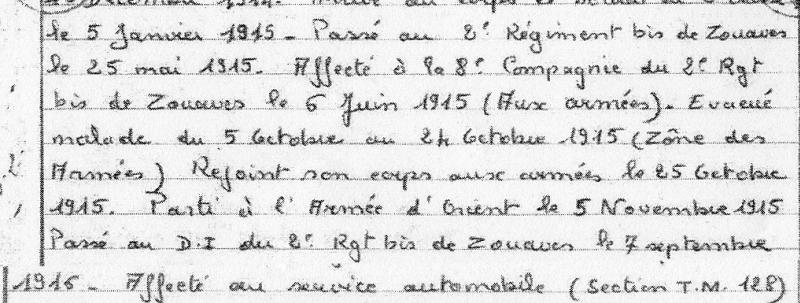 Décembre 1914. Arrivé au corps et
le 5 Janvier 1915 - Passé au 2e Régiment bis de Zouaves
le 25 mai 1915. Affecté à la 8e Compagnie du 2e Rgt
bis de Zouaves le 6 Juin 1915 (Aux armées). Evacué
malade du 5 Octobre au 24 Octobre 1915 (Zône des
Armées) Rejoint son corps aux armées le 25 Octobre
1915. Parti à l'Armée d'Orient le 5 Novembre 1915
Passé au D.I du 2e Rgt bis de Zouaves le 7 septembre
1916 - Affecté au service automobile (Section T.M. 128)